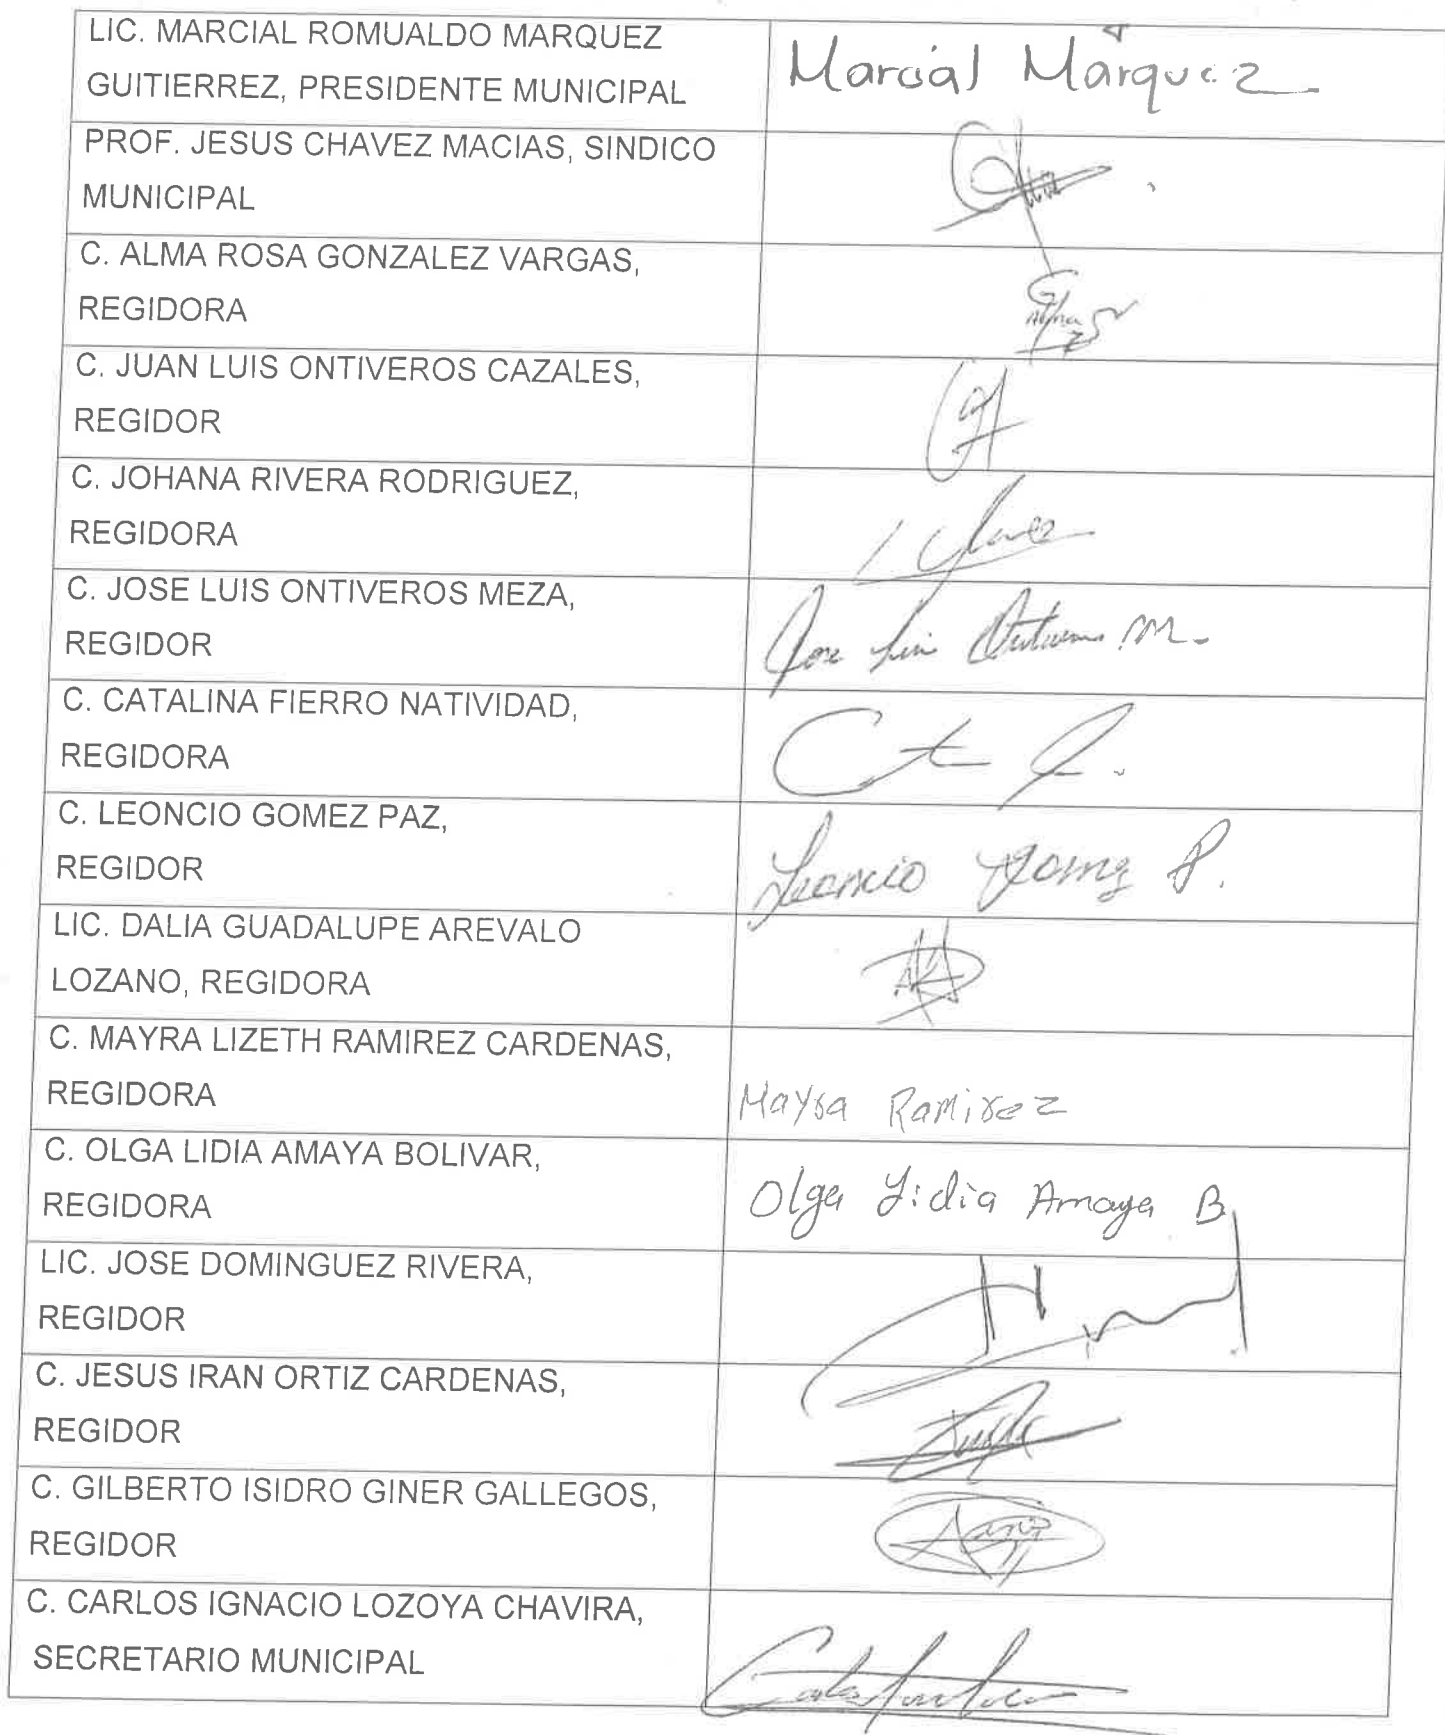 LIC. MARCIAL ROMUALDO MARQUEZ
GUITIERREZ, PRESIDENTE MUNICIPAL
Marcial Márquez
PROF. JESUS CHAVEZ MACIAS, SINDICO
MUNICIPAL
C. ALMA ROSA GONZALEZ VARGAS,
REGIDORA
Alma
C. JUAN LUIS ONTIVEROS CAZALES,
REGIDOR
C. JOHANA RIVERA RODRIGUEZ,
REGIDORA
C. JOSE LUIS ONTIVEROS MEZA,
REGIDOR
Jose Luis Ontiveros M.
C. CATALINA FIERRO NATIVIDAD,
REGIDORA
C. LEONCIO GOMEZ PAZ,
REGIDOR
Leoncio Gomez P.
LIC. DALIA GUADALUPE AREVALO
LOZANO, REGIDORA
C. MAYRA LIZETH RAMIREZ CARDENAS,
REGIDORA
Mayra Ramirez
C. OLGA LIDIA AMAYA BOLIVAR,
REGIDORA
Olga Lidia Amaya B.
LIC. JOSE DOMINGUEZ RIVERA,
REGIDOR
C. JESUS IRAN ORTIZ CARDENAS,
REGIDOR
C. GILBERTO ISIDRO GINER GALLEGOS,
REGIDOR
C. CARLOS IGNACIO LOZOYA CHAVIRA,
SECRETARIO MUNICIPAL